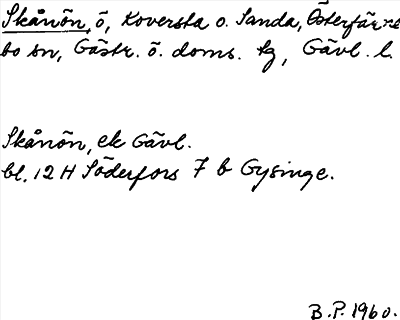 Skånön, ö, Koversta o. Sanda, Österfärne
bo sn, Gästr. ö. doms. tg, Gävl. l.
Skånön, ek Gävl.
bl. 12 H Söderfors 7 b Gysinge.
B.P. 1960.